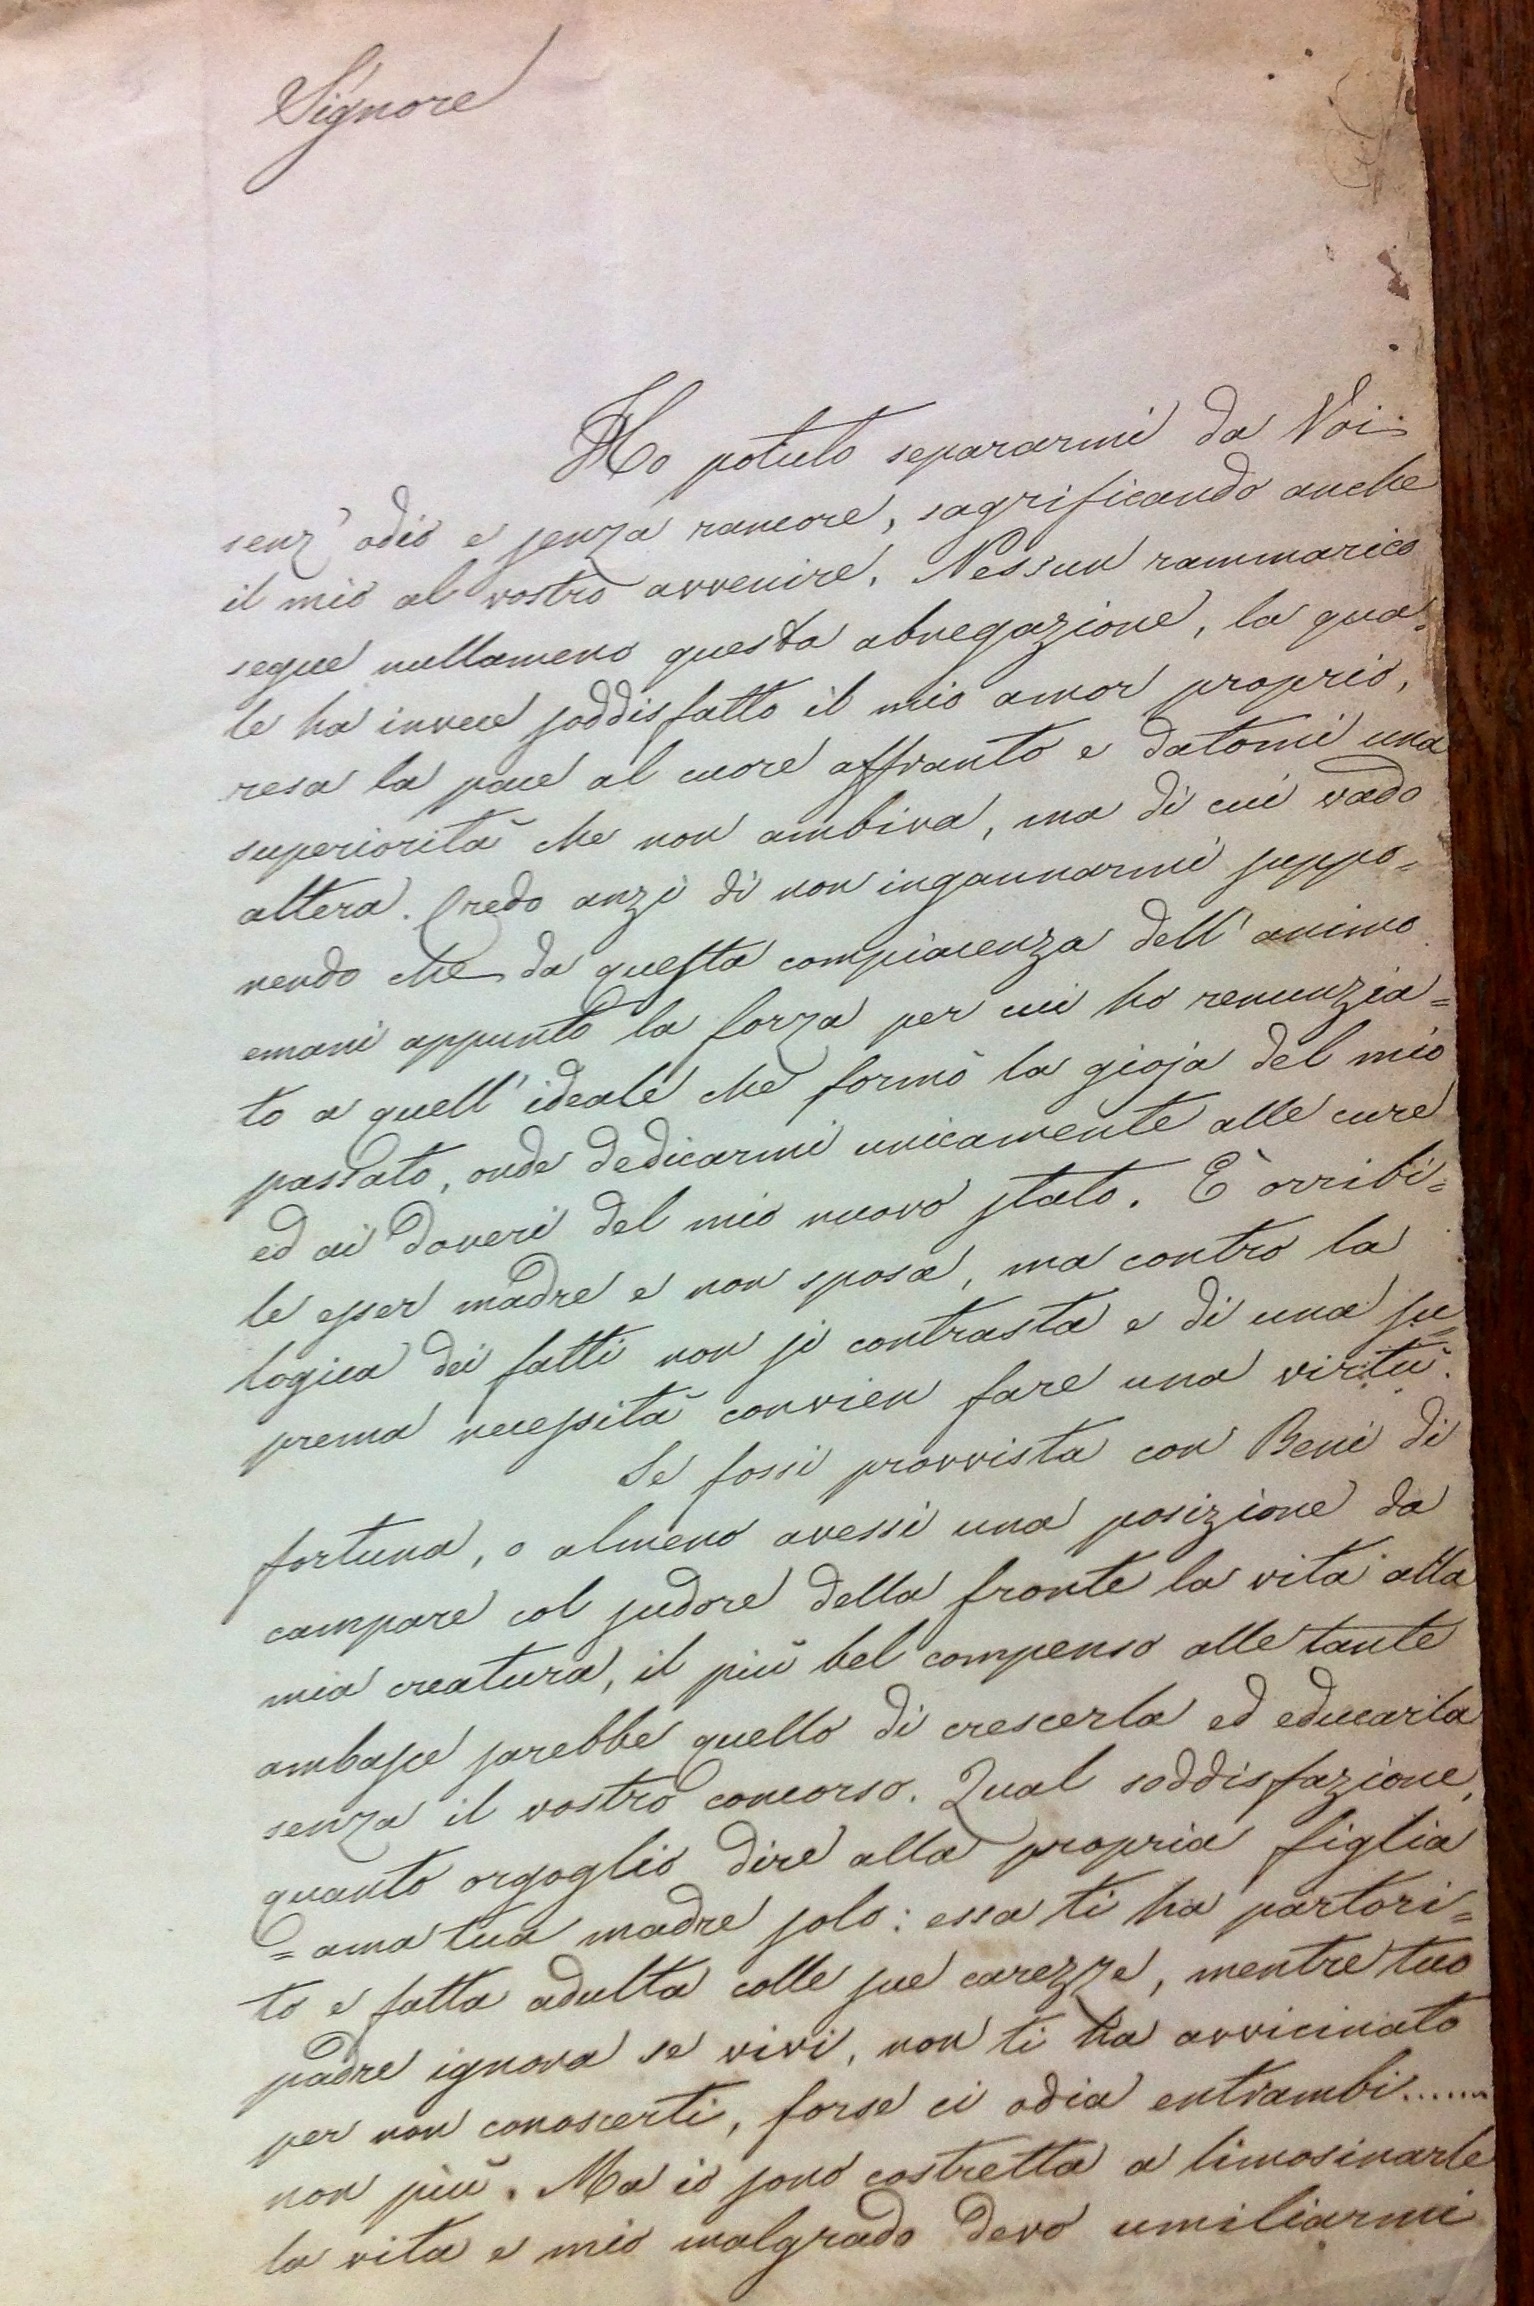 Signore
Ho potuto separarmi da Voi
senz' odio e senza rancore, sagrificando anche
il mio al vostro avvenire. Nessun rammarico
segue nullameno questa abnegazione, la qua=
le ha invece soddisfatto il mio amor proprio,
resa la pace al cuore affranto e datomi una
superiorità che non ambiva, ma di cui vado
altera. Credo anzi di non ingannarmi suppo=
nendo che da questa compiacenza dell' animo
emani appunto la forza per cui ho renunzia=
to a quell' ideale che formò la gioja del mio
passato, onde dedicarmi unicamente alle cure
ed ai doveri del mio nuovo stato. È orribi=
le esser madre e non sposa, ma contro la
logica dei fatti non si contrasta e di una su=
prema necessità convien fare una virtù.
Se fossi provvista con Beni di
fortuna, o almeno avessi una posizione da
campare col sudore della fronte la vita alla
mia creatura, il più bel compenso alle tante
ambasce sarebbe quello di crescerla ed educarla
senza il vostro concorso. Qual soddisfazione,
quanto orgoglio dire alla propria figlia
= ama tua madre solo: essa ti ha partori=
to e fatta adulta colle sue carezze, mentre tuo
padre ignora se vivi, non ti ha avvicinato
per non conoscerti, forse ci odia entrambi.......
non più. Ma io sono costretta a limosinarle
la vita e mio malgrado devo umiliarmi